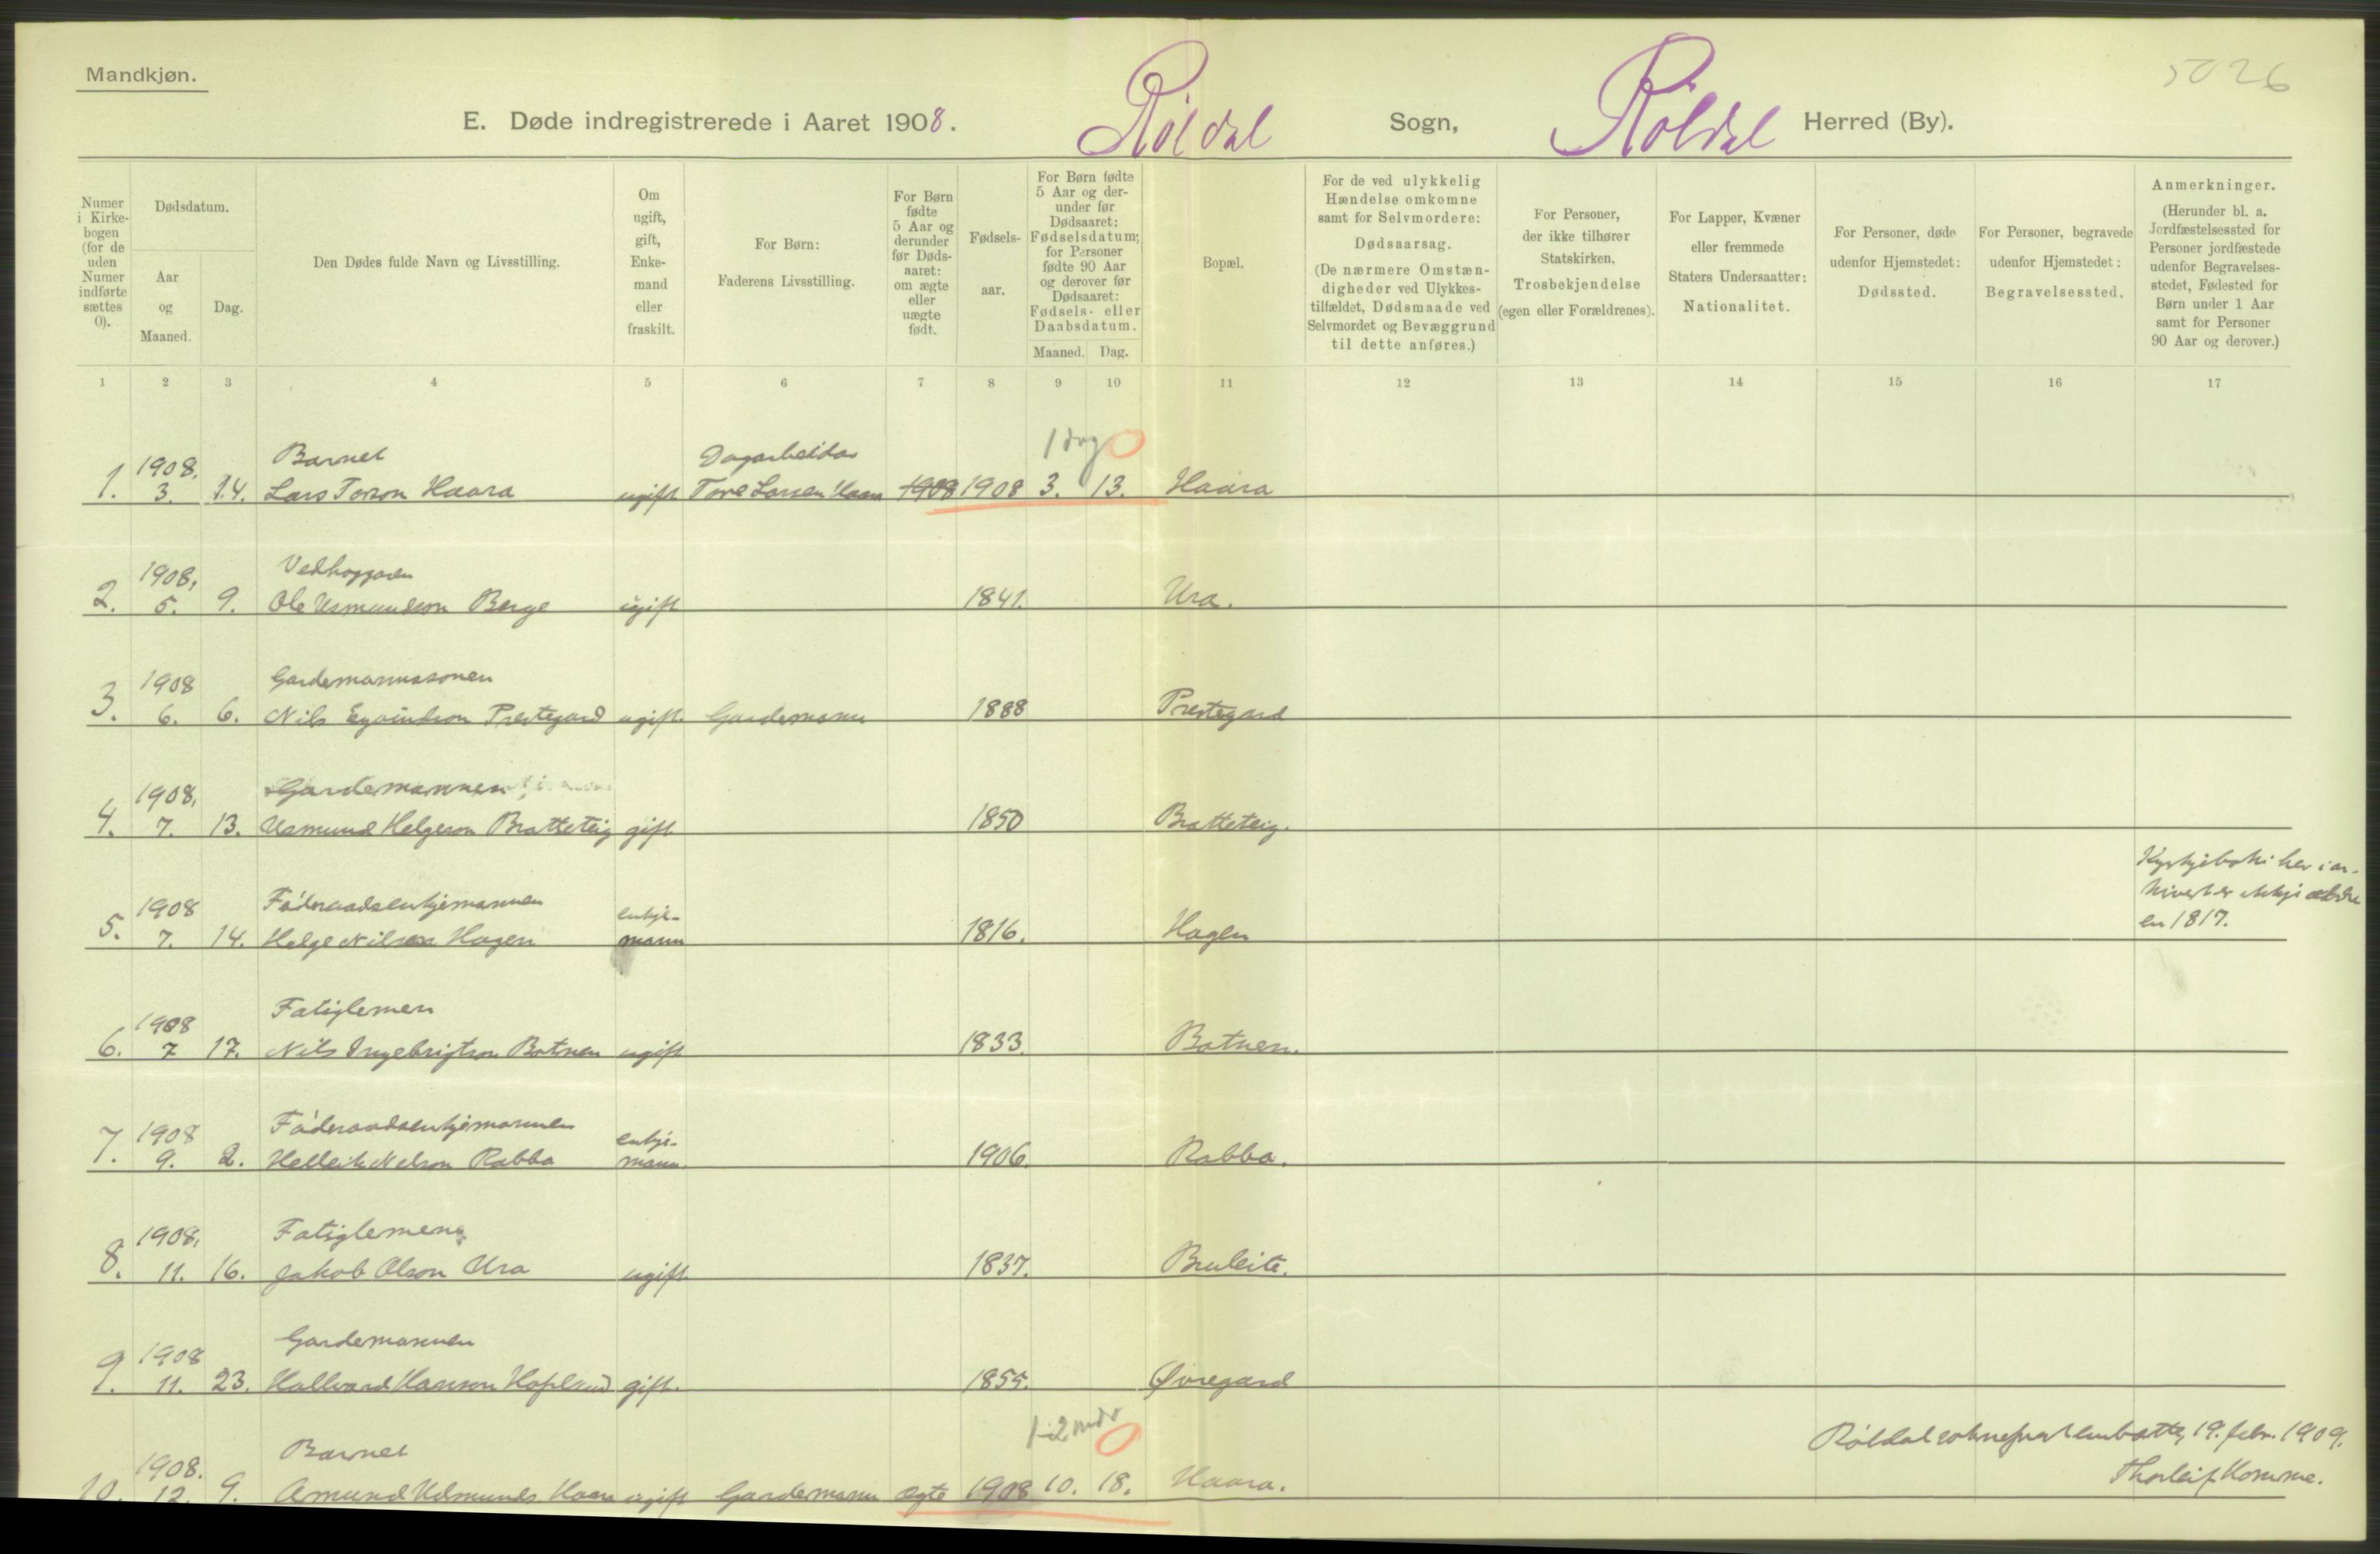 Mandkjøn.
5026
E. Døde indregistrerede i Aaret 1908. Röldal Sogn, Röldal Herred (By).
Numer i Kirkebogen (for de uden Numer indførte sættes 0).
Dødsdatum.
Aar og Maaned.
Dag.
Den Dødes fulde Navn og Livsstilling.
Om ugift, gift, Enkemand eller fraskilt.
For Børn: Faderens Livsstilling.
For Børn fødte 5 Aar og derunder før Dødsaaret: om ægte eller uægte født.
Fødselsaar.
For Børn fødte 5 Aar og derunder før Dødsaaret: Fødselsdatum; for Personer fødte 90 Aar og derover før Dødsaaret: Fødsels- eller Daabsdatum.
Maaned. Dag.
Bopæl.
For de ved ulykkelig Hændelse omkomne samt for Selvmordere: Dødsaarsag. (De nærmere Omstændigheder ved Ulykkestilfældet, Dødsmaade ved Selvmordet og Bevæggrund til dette anføres.)
For Personer, der ikke tilhører Statskirken, Trosbekjendelse (egen eller Forældrenes).
For Lapper, Kvæner eller fremmede Staters Undersaatter: Nationalitet.
For Personer, døde udenfor Hjemstedet: Dødssted.
For Personer, begravede udenfor Hjemstedet: Begravelsessted.
Anmerkninger. (Herunder bl. a. Jordfæstelsessted for Personer jordfæstede udenfor Begravelsesstedet, Fødested for Børn under 1 Aar samt for Personer 90 Aar og derover.)
1 2 3 4 5 6 7 8 9 10 11 12 13 14 15 16 17
1908. Barnet Dagarbeidar 1 dag 0
1. 3. 14. Lars Torson Haara ugift Tore Larsen Haara 1908 1908 3. 13. Haara
1908, Vedhoggaren
2. 5. 9. Ole Asmundson Berge ugift 1841. Ura.
1908 Gardemannssonen
3. 6. 6. Nils Eyvindson Prestegard ugift. Gardemann 1888 Prestegard
1908, Gardemannen
4. 7. 13. Asmund Helgeson Bratteteig gift 1850 Bratteteig.
1908 Föderaadsenkjemannen enkje- Kyrkjeboki her i ar-
kivet er ikkje eldre
5. 7. 14. Helge Nilson Hagen mann 1816. Hagen en 1817.
1908 Fatiglemen
6. 7 17. Nils Ingebrigtson Botnen ugift 1833. Botnen.
1908 Föderaadsenkjemannen enkje-
7. 9. 2. Helleik Nelson Rabba mann. 1906. Rabba.
1908, Fatiglemen
8. 11. 16. Jakob Olson Ura ugift 1837. Bruleite.
1908 Gardemannen
9. 11. 23. Hallvard Hanson Hopland gift. 1855. Øvregard
1908. Barnet 1-2 mdr 0 Röldal sokneprestembætte, 19. febr. 1909.
10. 12. 9. Amund Asmunds Haara ugift Gardemann ægte 1908 10. 18. Haara. Thorleif Homme.